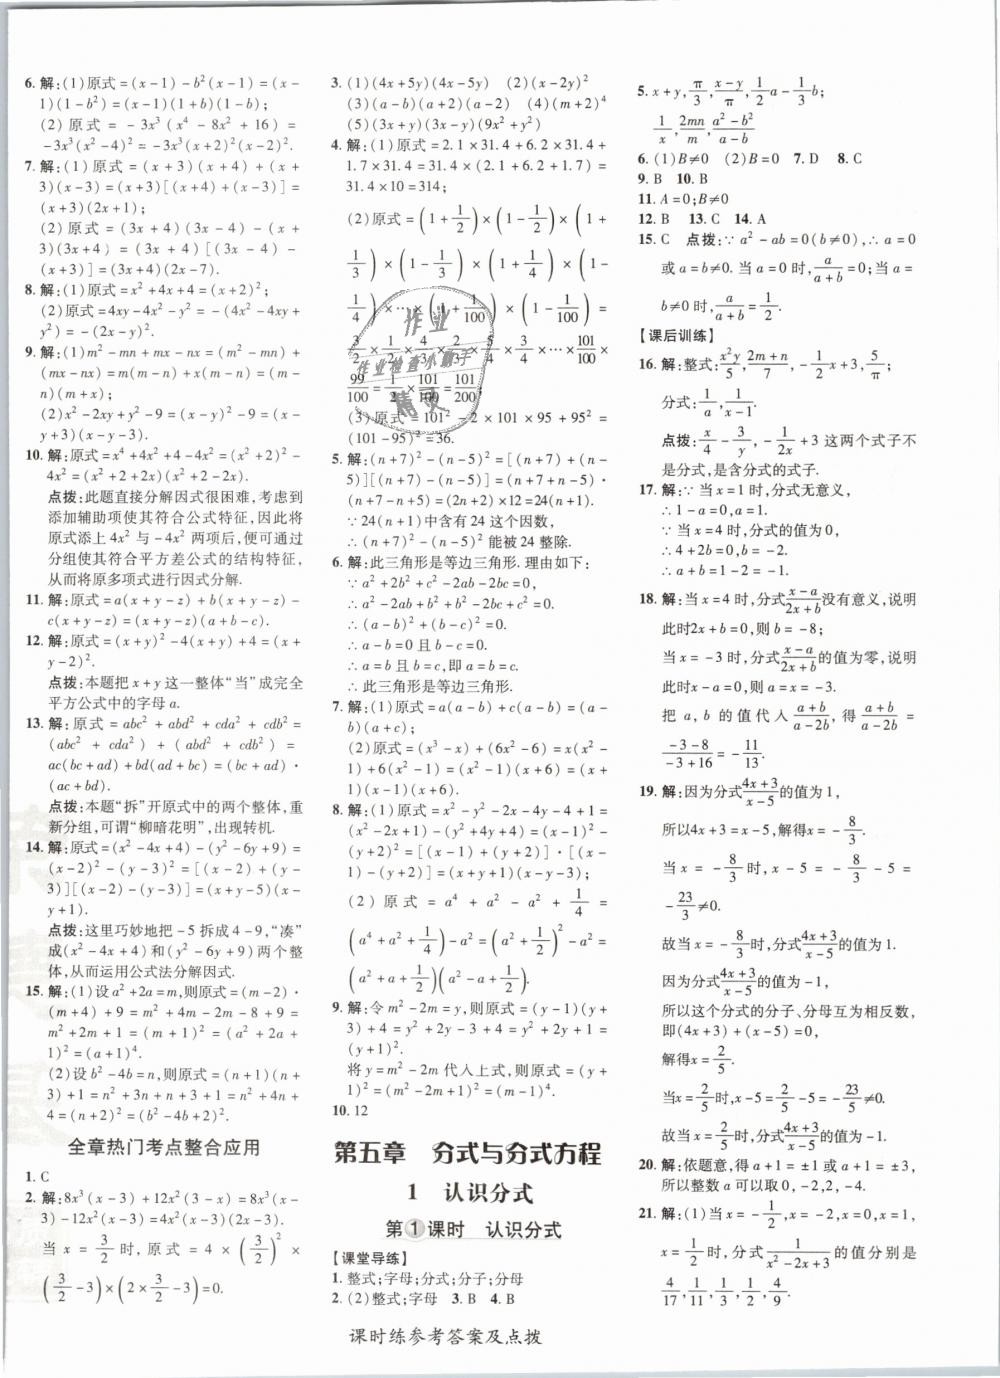 6. 解:(1)原式=(x-1)-b²(x-1)=(x-
1)(1-b²)=(x-1)(1+b)(1-b);
(2) 原式 = -3x³(x⁴-8x²+16) =
-3x³(x²-4)²=-3x³(x+2)²(x-2)².
7. 解:(1)原式=(x+3)(x+4)+(x+
3)(x-3)=(x+3)[(x+4)+(x-3)]=
(x+3)(2x+1);
(2)原式=(3x+4)(3x-4)-(x+
3)(3x+4)=(3x+4)[(3x-4)-
(x+3)]=(3x+4)(2x-7).
8. 解:(1)原式=x²+4x+4=(x+2)²;
(2)原式=4xy-4x²-y²=-(4x²-4xy+
y²)=-(2x-y)².
9. 解:(1)m²-mn+mx-nx=(m²-mn)+
(mx-nx)=m(m-n)+x(m-n)=(m-
n)(m+x);
(2)x²-2xy+y²-9=(x-y)²-9=(x-
y+3)(x-y-3).
10. 解:原式=x⁴+4x²+4-4x²=(x²+2)²-
4x²=(x²+2+2x)(x²+2-2x).
点拨:此题直接分解因式很困难,考虑到
添加辅助项使其符合公式特征,因此将
原式添上4x²与-4x²两项后,便可通过
分组使其符合平方差公式的结构特征,
从而将原多项式进行因式分解.
11. 解:原式=a(x+y-z)+b(x+y-z)-
c(x+y-z)=(x+y-z)(a+b-c).
12. 解:原式=(x+y)²-4(x+y)+4=(x+
y-2)².
点拨:本题把x+y这一整体“当”成完全
平方公式中的字母a.
13. 解:原式=abc²+abd²+cda²+cdb²=
(abc²+cda²)+(abd²+cdb²)=
ac(bc+ad)+bd(ad+bc)=(bc+ad)·
(ac+bd).
点拨:本题“拆”开原式中的两个整体,重
新分组,可谓“柳暗花明”,出现转机.
14. 解:原式=(x²-4x+4)-(y²-6y+9)=
(x-2)²-(y-3)²=[(x-2)+(y-
3)][(x-2)-(y-3)]=(x+y-5)(x-
y+1).
点拨:这里巧妙地把-5拆成4-9,“凑”
成(x²-4x+4)和(y²-6y+9)两个整
体,从而运用公式法分解因式.
15. 解:(1)设a²+2a=m,则原式=(m-2)·
(m+4)+9=m²+4m-2m-8+9=
m²+2m+1=(m+1)²=(a²+2a+
1)²=(a+1)⁴.
(2)设b²-4b=n,则原式=(n+1)(n+
3)+1=n²+3n+n+3+1=n²+4n+
4=(n+2)²=(b²-4b+2)².
全章热门考点整合应用
1. C
2. 解:8x³(x-3)+12x(3-x)=8x³(x-
3)-12x²(x-3)=4x²(x-3)(2x-3).
当x=3/2时,原式=4×(3/2)²×
(3/2-3)×(2×3/2-3)=0.
3. (1)(4x+5y)(4x-5y) (2)(x-2y)²
(3)(a-b)(a+2)(a-2) (4)(m+2)⁴
(5)(3x+y)(3x-y)(9x²+y²)
4. 解:(1)原式=2.1×31.4+6.2×31.4+
1.7×31.4=31.4×(2.1+6.2+1.7)=
31.4×10=314;
(2)原式=(1+1/2)×(1-1/2)×(1+
1/3)×(1-1/3)×(1+1/4)×(1-
1/4)×…×(1+1/100)×(1-1/100)=
3/2×1/2×4/3×2/3×5/4×3/4×…×101/100×
99/100=1/2×101/100=101/200;
(3)原式=101²-2×101×95+95²=
(101-95)²=36.
5. 解:(n+7)²-(n-5)²=[(n+7)+(n-
5)][(n+7)-(n-5)]=(n+7+n-5)·
(n+7-n+5)=(2n+2)×12=24(n+1).
∵24(n+1)中含有24这个因数,
∴(n+7)²-(n-5)²能被24整除.
6. 解:此三角形是等边三角形. 理由如下:
∵a²+2b²+c²-2ab-2bc=0,
∴a²-2ab+b²+b²-2bc+c²=0.
∴(a-b)²+(b-c)²=0.
∴a-b=0且b-c=0.
∴a=b且b=c,即a=b=c.
∴此三角形是等边三角形.
7. 解:(1)原式=a(a-b)+c(a-b)=(a-
b)(a+c);
(2)原式=(x³-x)+(6x²-6)=x(x²-
1)+6(x²-1)=(x²-1)(x+6)=(x+
1)(x-1)(x+6).
8. 解:(1)原式=x²-y²-2x-4y-4+1=
(x²-2x+1)-(y²+4y+4)=(x-1)²-
(y+2)²=[(x-1)+(y+2)]·[(x-
1)-(y+2)]=(x+y+1)(x-y-3);
(2)原式=a⁴+a²-a²+1/4=
(a⁴+a²+1/4)-a²=(a²+1/2)²-a²=
(a²+a+1/2)(a²-a+1/2).
9. 解:令m²-2m=y,则原式=(y-1)(y+
3)+4=y²+2y-3+4=y²+2y+1=
(y+1)².
将y=m²-2m代入上式,则原式=(y+
1)²=(m²-2m+1)²=(m-1)⁴.
10. 12
第五章 分式与分式方程
1 认识分式
第1课时 认识分式
【课堂导练】
1. 整式;字母;分式;分子;分母
2. (2)整式;字母 3. B 4. B
5. x+y,π/3,(x-y)/π,1/2a-1/3b;
1/x,2mn/m,(a²-b²)/(a-b)
6. (1)B≠0 (2)B=0 7. D 8. C
9. B 10. B
11. A=0;B≠0
12. B 13. C 14. A
15. C 点拨:∵a²-ab=0(b≠0),∴a=0
或a=b≠0. 当a=0时,a/(a+b)=0;当a=
b≠0时,a/(a+b)=1/2.
【课后训练】
16. 解:整式:x²y/5,(2m+n)/7,-1/2x²+3,5/π;
分式:1/a,1/(x-1).
点拨:x/4-3/y,-1/a+3这两个式子不
是分式,是含分式的式子.
17. 解:∵当x=1时,分式无意义,
∴1-a=0,a=1.
∵当x=4时,分式的值为0,
∴4+2b=0,b=-2.
∴a+b=1-2=-1.
18. 解:当x=4时,分式(x-a)/(2x+b)没有意义,说明
此时2x+b=0,则b=-8;
当x=-3时,分式(x-a)/(2x+b)的值为零,说明
此时x-a=0,则a=x=-3.
把a,b的值代入(a+b)/(a-2b),得(a+b)/(a-2b)=
(-3-8)/(-3+16)=-11/13.
19. 解:因为分式(4x+3)/(x-5)的值为1,
所以4x+3=x-5,解得x=-8/3.
当x=-8/3时,x-5=-8/3-5=
-23/3≠0.
故当x=-8/3时,分式(4x+3)/(x-5)的值为1.
因为分式(4x+3)/(x-5)的值为-1,
所以这个分式的分子、分母互为相反数,
即(4x+3)+(x-5)=0,
解得x=2/5.
当x=2/5时,x-5=2/5-5=-23/5≠0.
故当x=2/5时,分式(4x+3)/(x-5)的值为-1.
20. 解:依题意,得a+1=±1或a+1=±3,
所以整数a可以取0,-2,2,-4.
21. 解:(1)当x=-1/2,0,1,-2,-1/2
时,分式1/(x²-2x+3)的值分别是
4/17,1/11,1/2,4/9.
课时练参考答案及点拨
作业
作业检查小助手
精灵